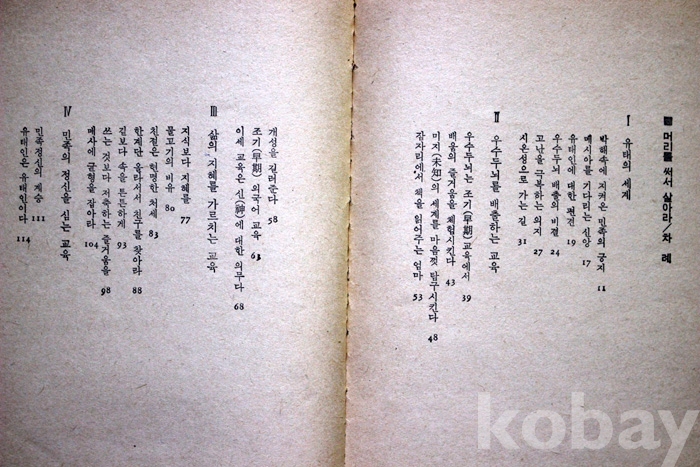 ■ 머리를 써서 살아라/차 례
Ⅰ 유태의 세계
박해속에 지켜온 민족의 긍지 11
메시아를 기다리는 신앙 17
유태인에 대한 편견 19
우수두뇌 배출의 비결 24
고난을 극복하는 의지 27
시온성으로 가는 길 31
Ⅱ 우수두뇌를 배출하는 교육
우수두뇌는 조기(早期)교육에서 39
배움의 즐거움을 체험시킨다 43
미지(未知)의 세계를 마음껏 탐구시킨다 48
잠자리에서 책을 읽어주는 엄마 53
개성을 길러준다 58
조기(早期) 외국어 교육 63
이세 교육은 신(神)에 대한 의무다 68
Ⅲ 삶의 지혜를 가르치는 교육
지식보다 지혜를 77
물고기의 비유 80
친절은 현명한 처세 83
한계단 올라서서 친구를 찾아라 88
길보다 속을 튼튼하게 93
쓰는 것보다 저축하는 즐거움을 98
매사에 균형을 잡아라 104
Ⅳ 민족의 정신을 심는 교육
민족정신의 계승 111
유태인은 유태인이다 114
kobay